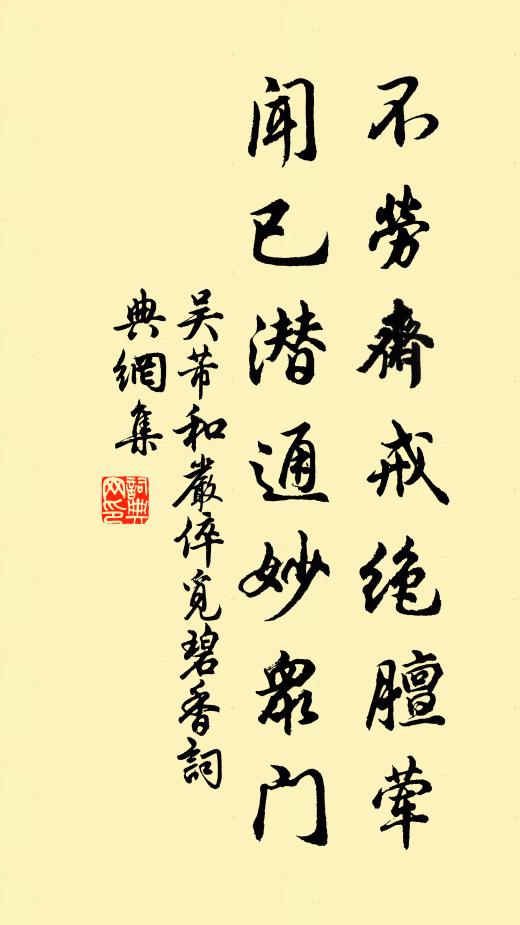 不劳斋戒绝膻荤
闻已潜通妙众门
吴芾和严倅觅碧香词
典网集
词典网印